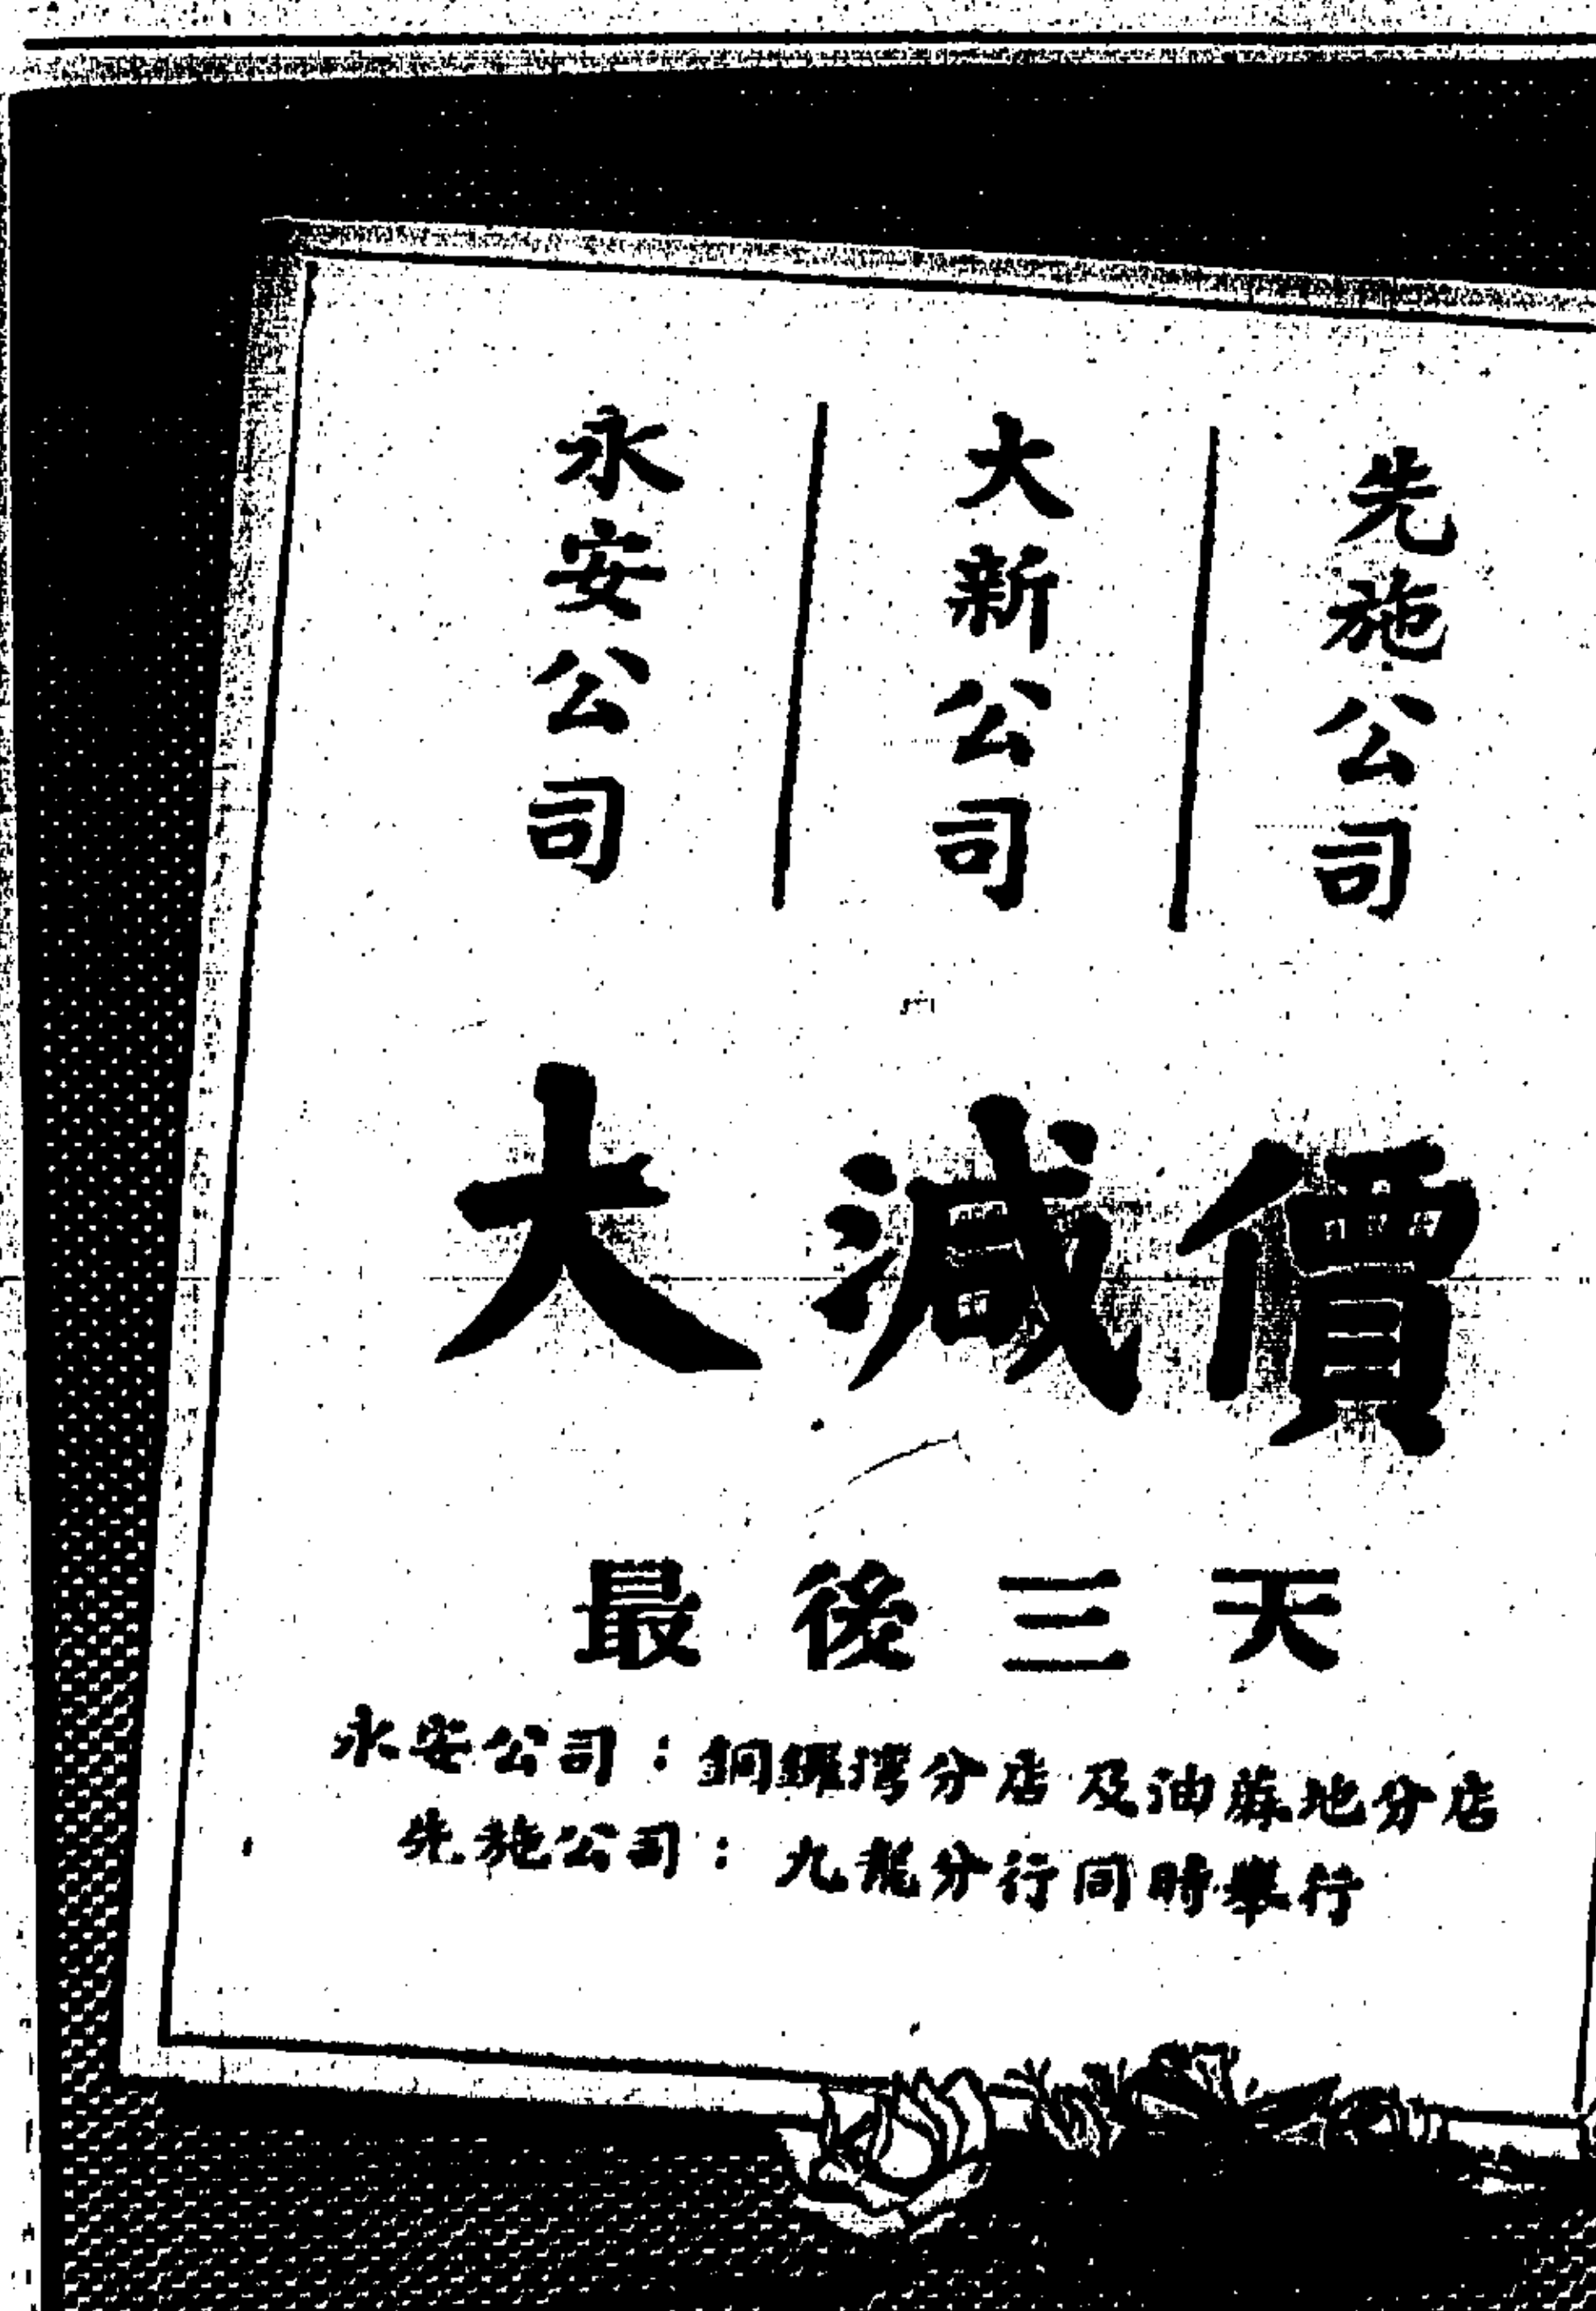 先施公司
大新公司
永安公司
大減價
最後三天
永安公司：銅鑼灣分店及油蔴地分店
先施公司：九龍分行同時舉行